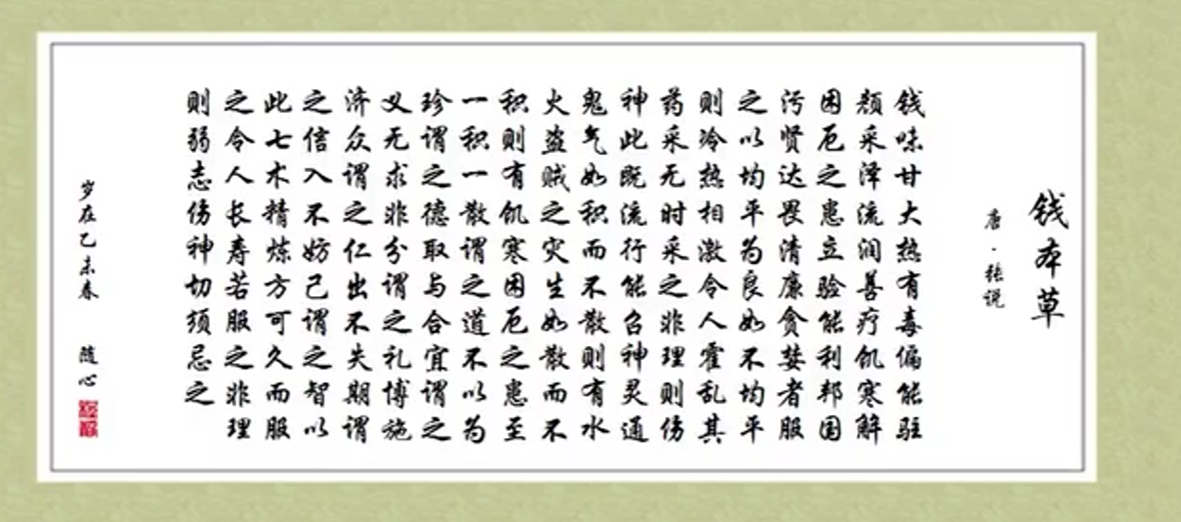 钱本草
唐·张说
钱味甘大热有毒偏能驻
颜采泽流润善疗饥寒解
困厄之患立验能利邦国
污贤达畏清廉贪婪者服
之以均平为良如不均平
则冷热相激令人霍乱其
药采无时采之非理则伤
神此既流行能召神灵通
鬼气如积而不散则有水
火盗贼之灾生如散而不
积则有饥寒困厄之患至
一积一散谓之道不以为
珍谓之德取与合宜谓之
义无求非分谓之礼博施
济众谓之仁出不失期谓
之信入不妨己谓之智以
此七术精炼方可久而服
之令人长寿若服之非理
则弱志伤神切须忌之
岁在乙未春 随心